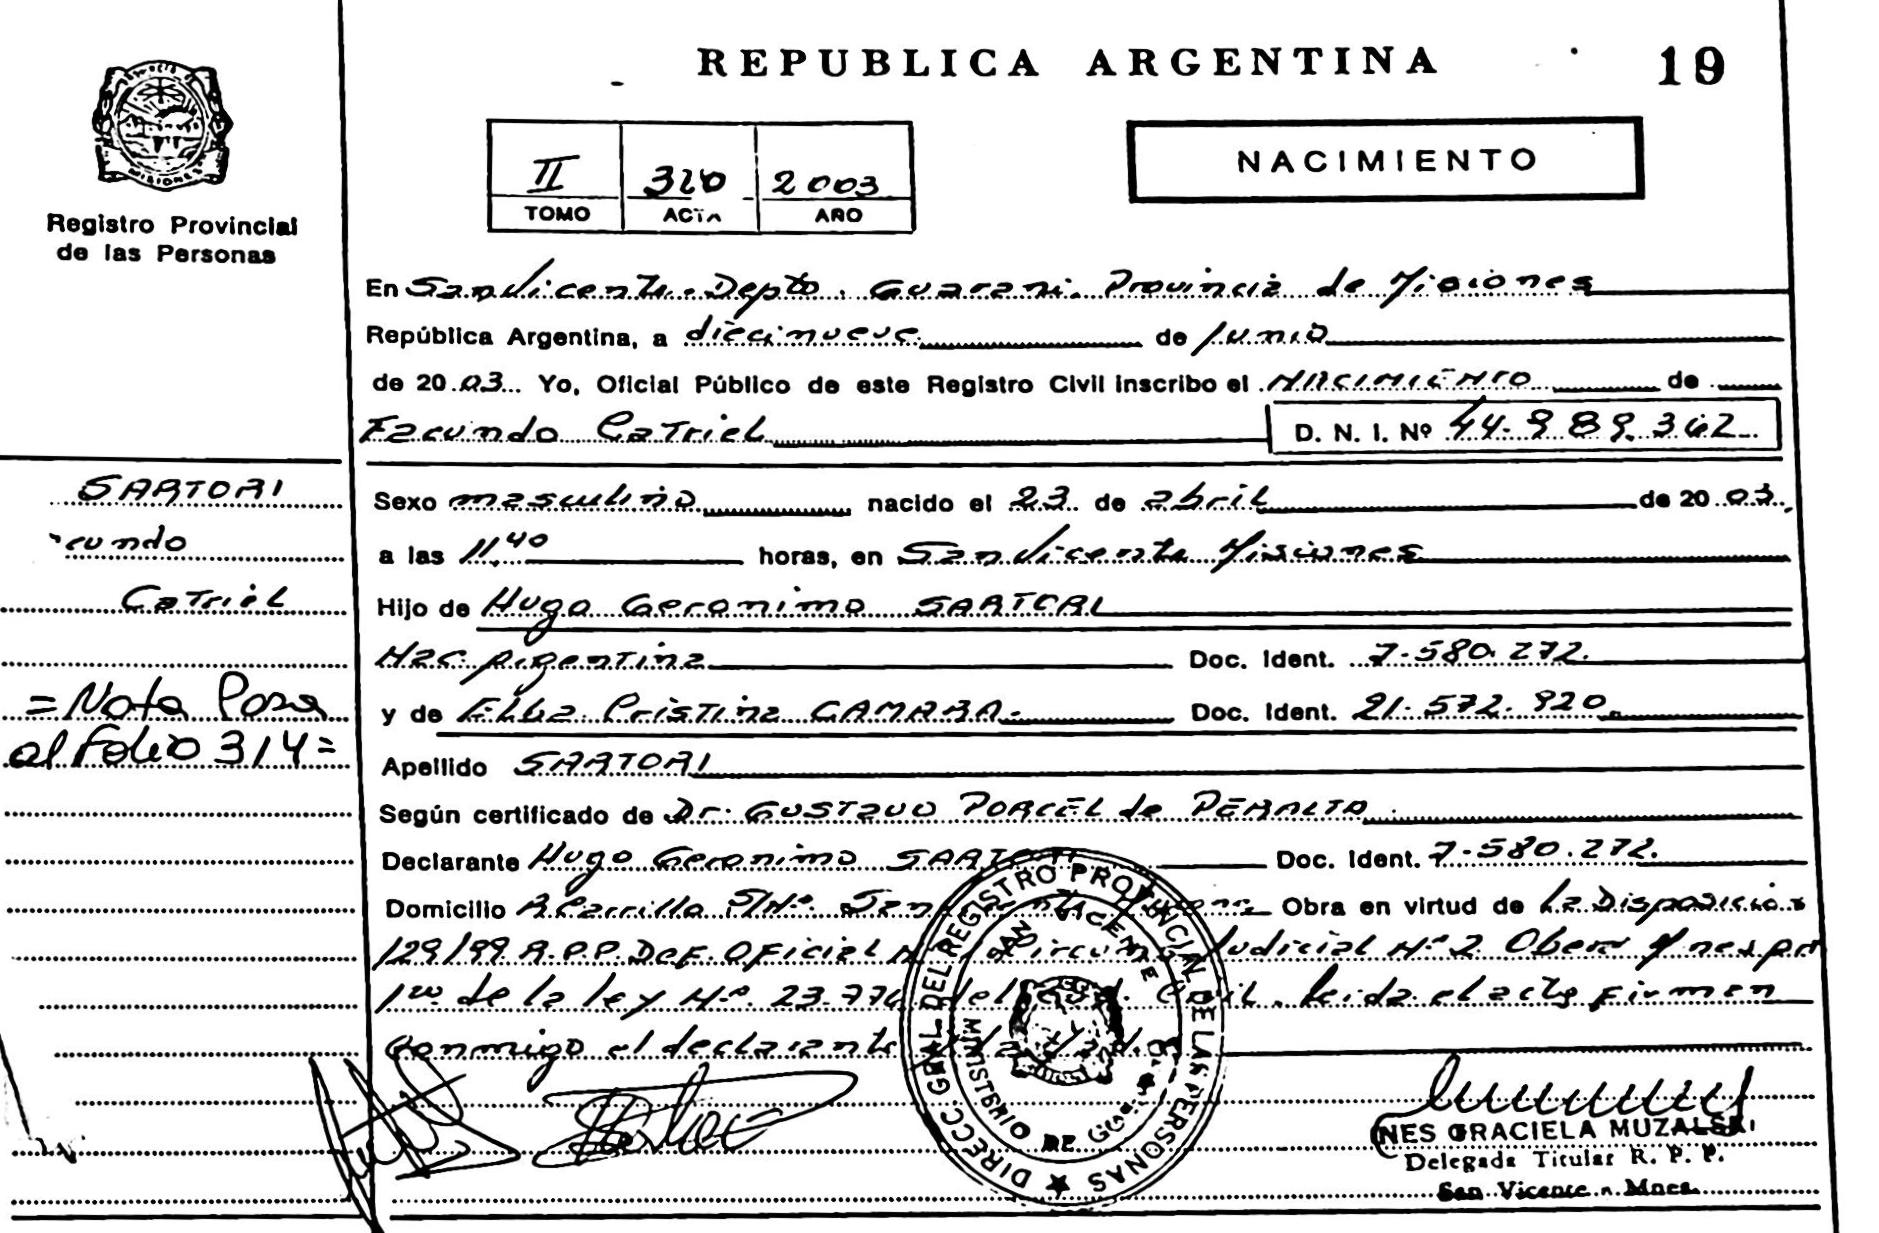 REPUBLICA ARGENTINA 19
NACIMIENTO
II 320 2003
TOMO ACTA AÑO
MISIONES
Registro Provincial
de las Personas
En San Vicente - Depto. Guarani. Provincia de Misiones
República Argentina, a diecinueve de Junio
de 2003 Yo, Oficial Público de este Registro Civil inscribo el NACIMIENTO de
Facundo Catriel D. N. I. Nº 44.989.362
Sexo masculino nacido el 23 de abril de 2003.
a las 11,40 horas, en San Vicente Misiones
Hijo de Hugo Geronimo SARTORI
Nac. Argentina Doc. Ident. 7.580.272.
y de Elba Cristina CAMARA.- Doc. Ident. 21.572.920.
Apellido SARTORI
Según certificado de Dr. GUSTAVO PORCEL de PERALTA.
Declarante Hugo Geronimo SARTORI Doc. Ident. 7.580.272.
Domicilio R. Carrillo S/Nº. San Vicente Obra en virtud de la Disposición
129/99 R.P.P. Def. Oficial Circunc. Judicial Nº 2 Obera
de la ley Nº. 23.776 Civil. leida el acta firman
conmigo el declarante
SARTORI
cundo
Catriel
=Nota Pasa
al Folio 314=
DIRECC. GRAL. DEL REGISTRO PROVINCIAL DE LAS PERSONAS
SAN VICENTE
MINISTERIO DE GOB.
INES GRACIELA MUZALSKI
Delegada Titular R. P. P.
San Vicente - Mnes.